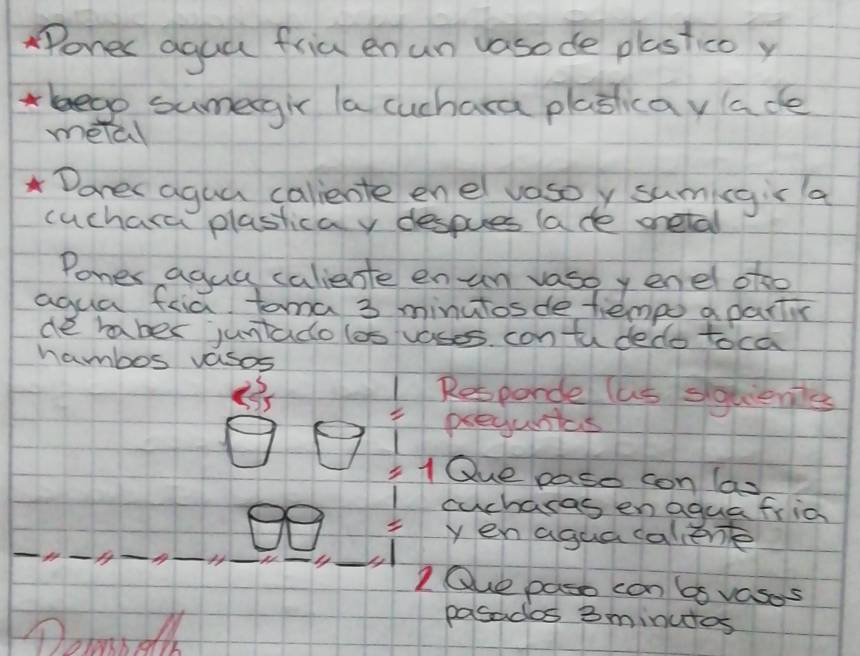 Poner agua fria en un vaso de plastico y
luego sumergir la cuchara plastica y la de
metal
Poner agua caliente en el vaso y sumirgir la
cuchara plastica y despues la de metal
Poner agua caliente en un vaso y en el otro
agua fria. toma 3 minutos de tiempo a partir
de haber juntado los vasos. con tu dedo toca
hambos vasos
Responde las siguientes
preguntas
1 Que paso con las
cucharas en agua fria
y en agua caliente
2 Que paso con los vasos
pasados 3 minutos